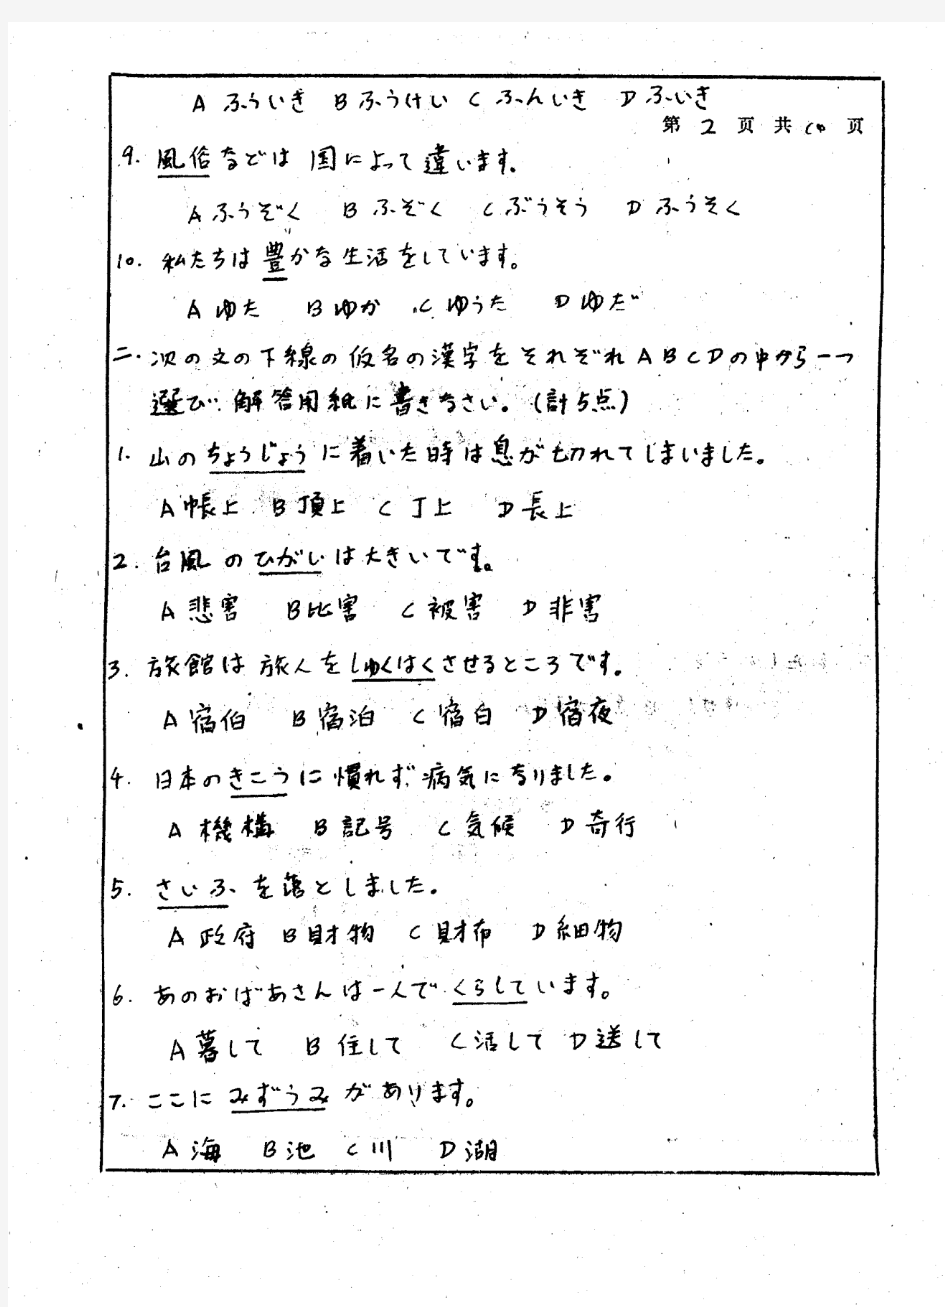 A ふういき B ふうけい C ふんいき D ふいき
第 2 页 共 10 页
9. 風俗などは国によって違います。
A ふうぞく B ふぞく C ぶうそう D ふうそく
10. 私たちは豊かな生活をしています。
A ゆた B ゆか C ゆうた D ゆだ
二. 次の文の下線の仮名の漢字をそれぞれABCDの中から一つ
選び、解答用紙に書きなさい。(計5点)
1. 山のちょうじょうに着いた時は息が切れてしまいました。
A 帳上 B 頂上 C 丁上 D 長上
2. 台風のひがいは大きいです。
A 悲害 B 比害 C 被害 D 非害
3. 旅館は旅人をしゅくはくさせるところです。
A 宿伯 B 宿泊 C 宿白 D 宿夜
4. 日本のきこうに慣れず、病気になりました。
A 機構 B 記号 C 気候 D 奇行
5. さいふを落としました。
A 政府 B 財物 C 財布 D 細物
6. あのおばあさんは一人でくらしています。
A 暮して B 住して C 活して D 送して
7. ここにみずうみがあります。
A 海 B 池 C 川 D 湖